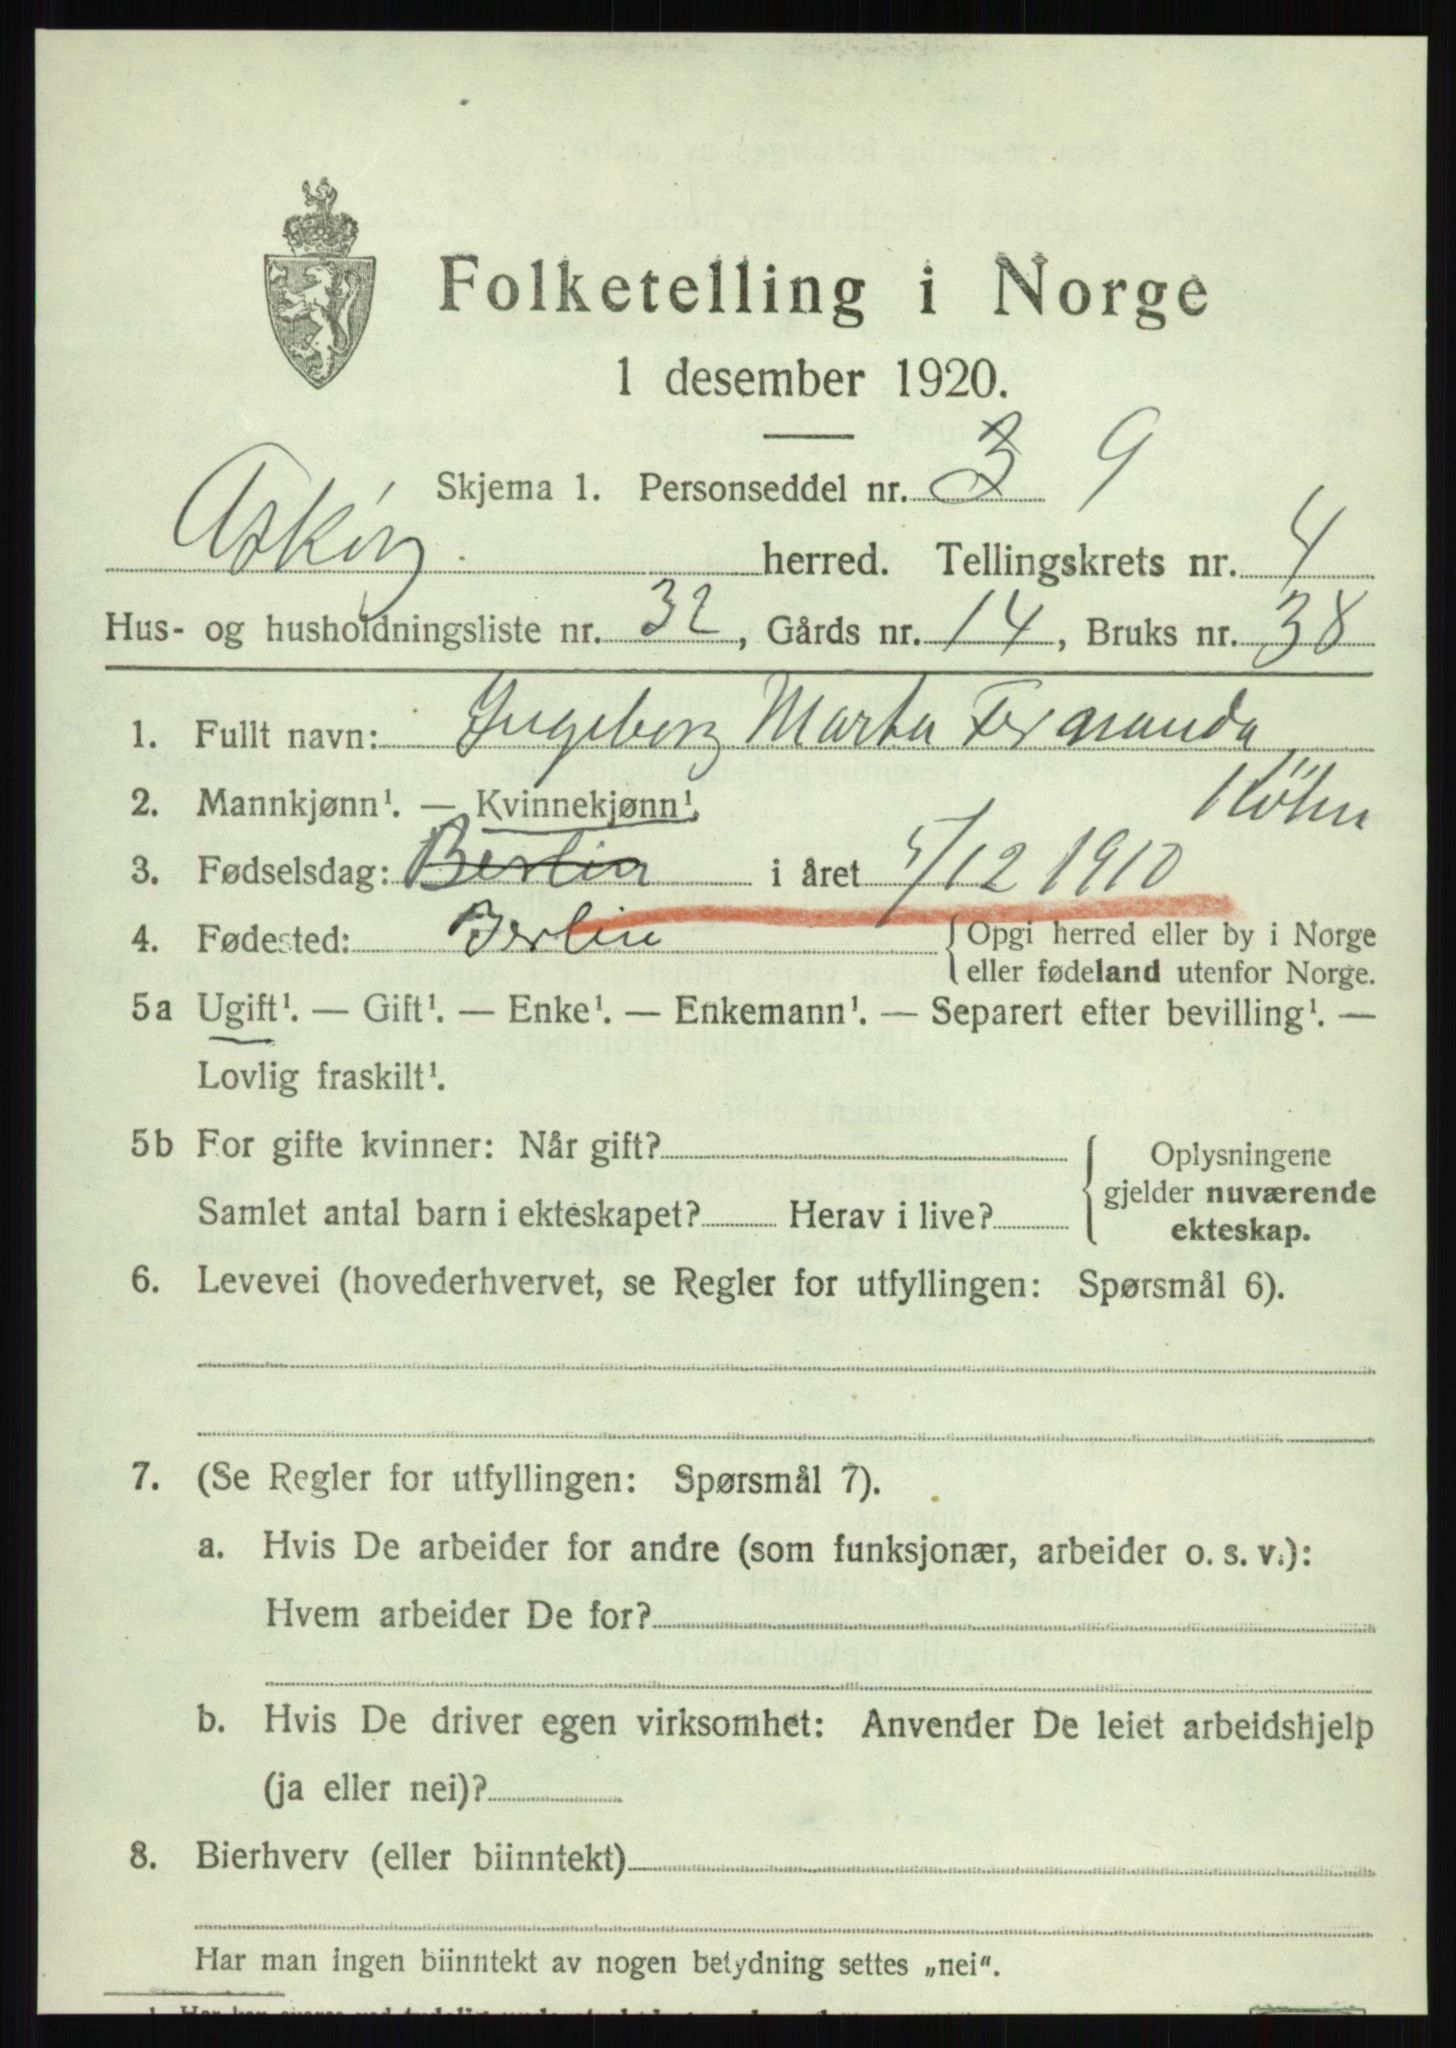 Folketelling i Norge
1 desember 1920.
Skjema 1. Personseddel nr. 3 9
Askøy herred. Tellingskrets nr. 4
Hus- og husholdningsliste nr. 32, Gårds nr. 14, Bruks nr. 38
1. Fullt navn: Ingeborg Marta Fernanda
Köhn
2. Mannkjønn¹. — Kvinnekjønn¹.
3. Fødselsdag: Berlin i året 5/12 1910
4. Fødested: Berlin {Opgi herred eller by i Norge
eller fødeland utenfor Norge.
5a Ugift¹. — Gift¹. — Enke¹. — Enkemann¹. — Separert efter bevilling¹. —
Lovlig fraskilt¹.
5b For gifte kvinner: Når gift? Oplysningene
gjelder nuværende
Samlet antal barn i ekteskapet? Herav i live? ekteskap.
6. Levevei (hovederhvervet, se Regler for utfyllingen: Spørsmål 6).
7. (Se Regler for utfyllingen: Spørsmål 7).
a. Hvis De arbeider for andre (som funksjonær, arbeider o. s. v.):
Hvem arbeider De for?
b. Hvis De driver egen virksomhet: Anvender De leiet arbeidshjelp
(ja eller nei)?
8. Bierhverv (eller biinntekt)
Har man ingen biinntekt av nogen betydning settes „nei“.